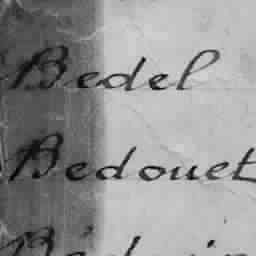 Bedel
Bedouet